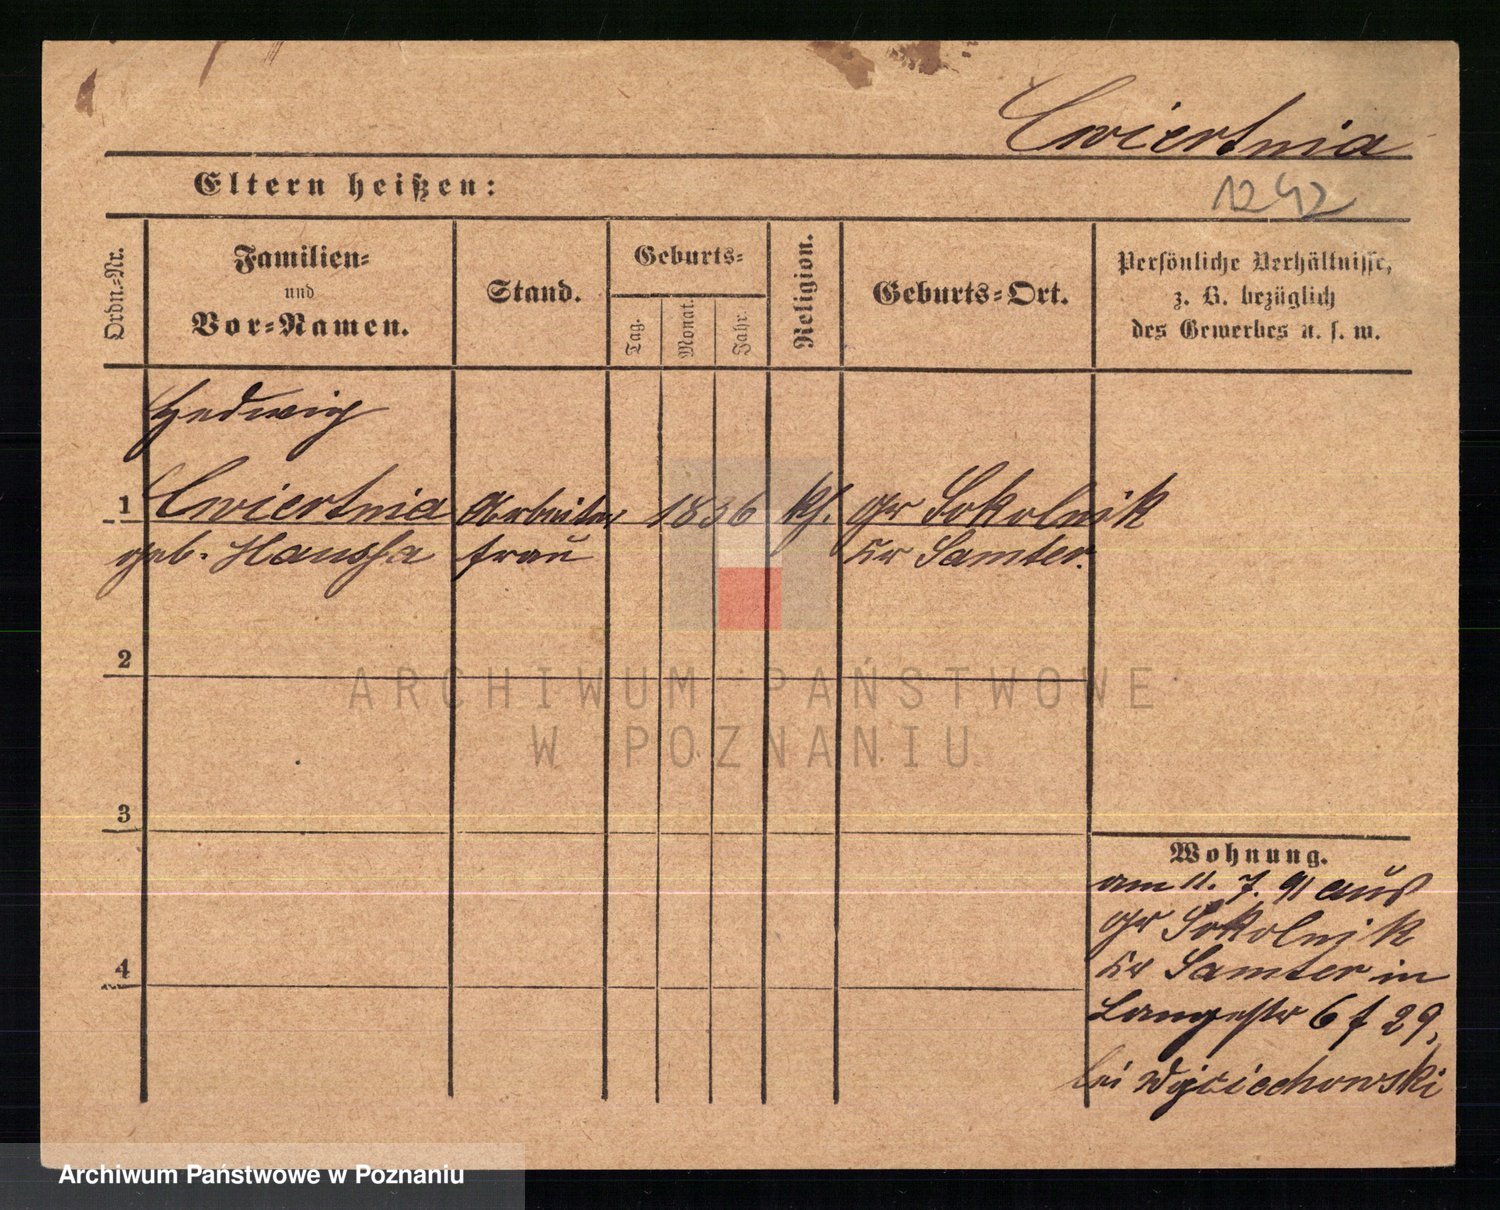 Cwiertnia
Eltern heißen:
1242
Ordn.-Nr.
Familien-
und
Vor-Namen.
Stand.
Geburts-
Tag.
Monat.
Jahr.
Religion.
Geburts-Ort.
Persönliche Verhältnisse,
z. B. bezüglich
des Gewerbes u. s. w.
Hedwig
1 Cwiertnia Arbeiter 1836 kh. gr Sokolnik
geb. Haussa frau Kr Samter.
2
ARCHIWUM PAŃSTWOWE
W POZNANIU
3
Wohnung.
am 11. 7. 91 aus
gr Sokolnik
4
Kr Samter in
Langestr 6 f 29,
bei Wojciechowski
Archiwum Państwowe w Poznaniu